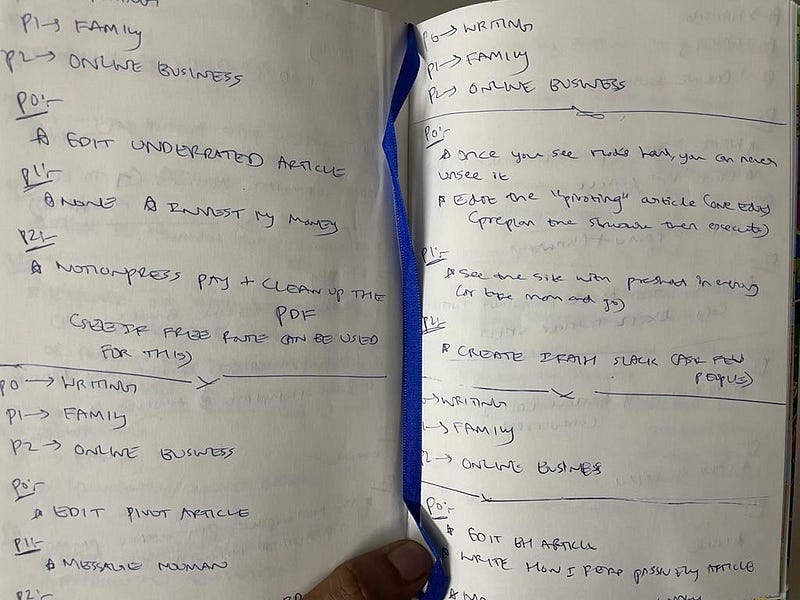 P1→ FAMILY
P2→ ONLINE BUSINESS
P0:-
EDIT UNDERRATED ARTICLE
P1:-
NONE INVEST MY MONEY
P2:-
NOTIONPRESS PAY + CLEAN UP THE
PDF
(SEE IF FREE ROUTE CAN BE USED
FOR THIS)
P0 → WRITING
P1→ FAMILY
P2→ ONLINE BUSINESS
P0:-
EDIT PIVOT ARTICLE
P1:-
MESSAGE
P2:-
P0→ WRITING
P1→ FAMILY
P2→ ONLINE BUSINESS
P0:-
Once you see you can never
unsee it
Edit the "pivoting" article (one edit)
(preplan the structure then execute)
P1:-
See the site with in evening
(or take mom and go)
P2:-
CREATE SLACK (ASK FEW
PEOPLE)
→WRITING
→FAMILY
→ ONLINE BUSINESS
P0:-
EDIT BH ARTICLE
WRITE HOW I PASSIVELY ARTICLE